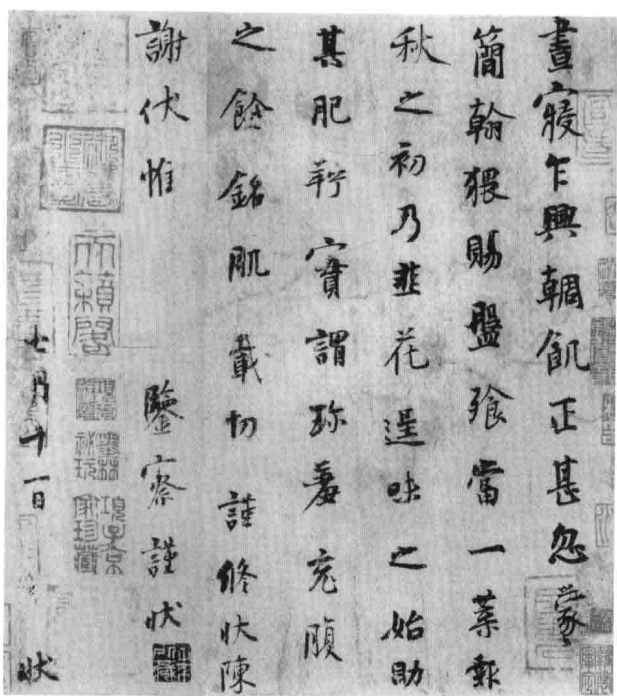 晝寢乍興輖飢正甚忽蒙
簡翰猥賜盤飧當一葉報
秋之初乃韭花逞味之始助
其肥羜實謂珍羞充腹
之餘銘肌載切 謹修狀陳
謝伏惟 鑒察謹狀
七月十一日 狀
天籟閣
項子京家珍藏
項墨林祕玩